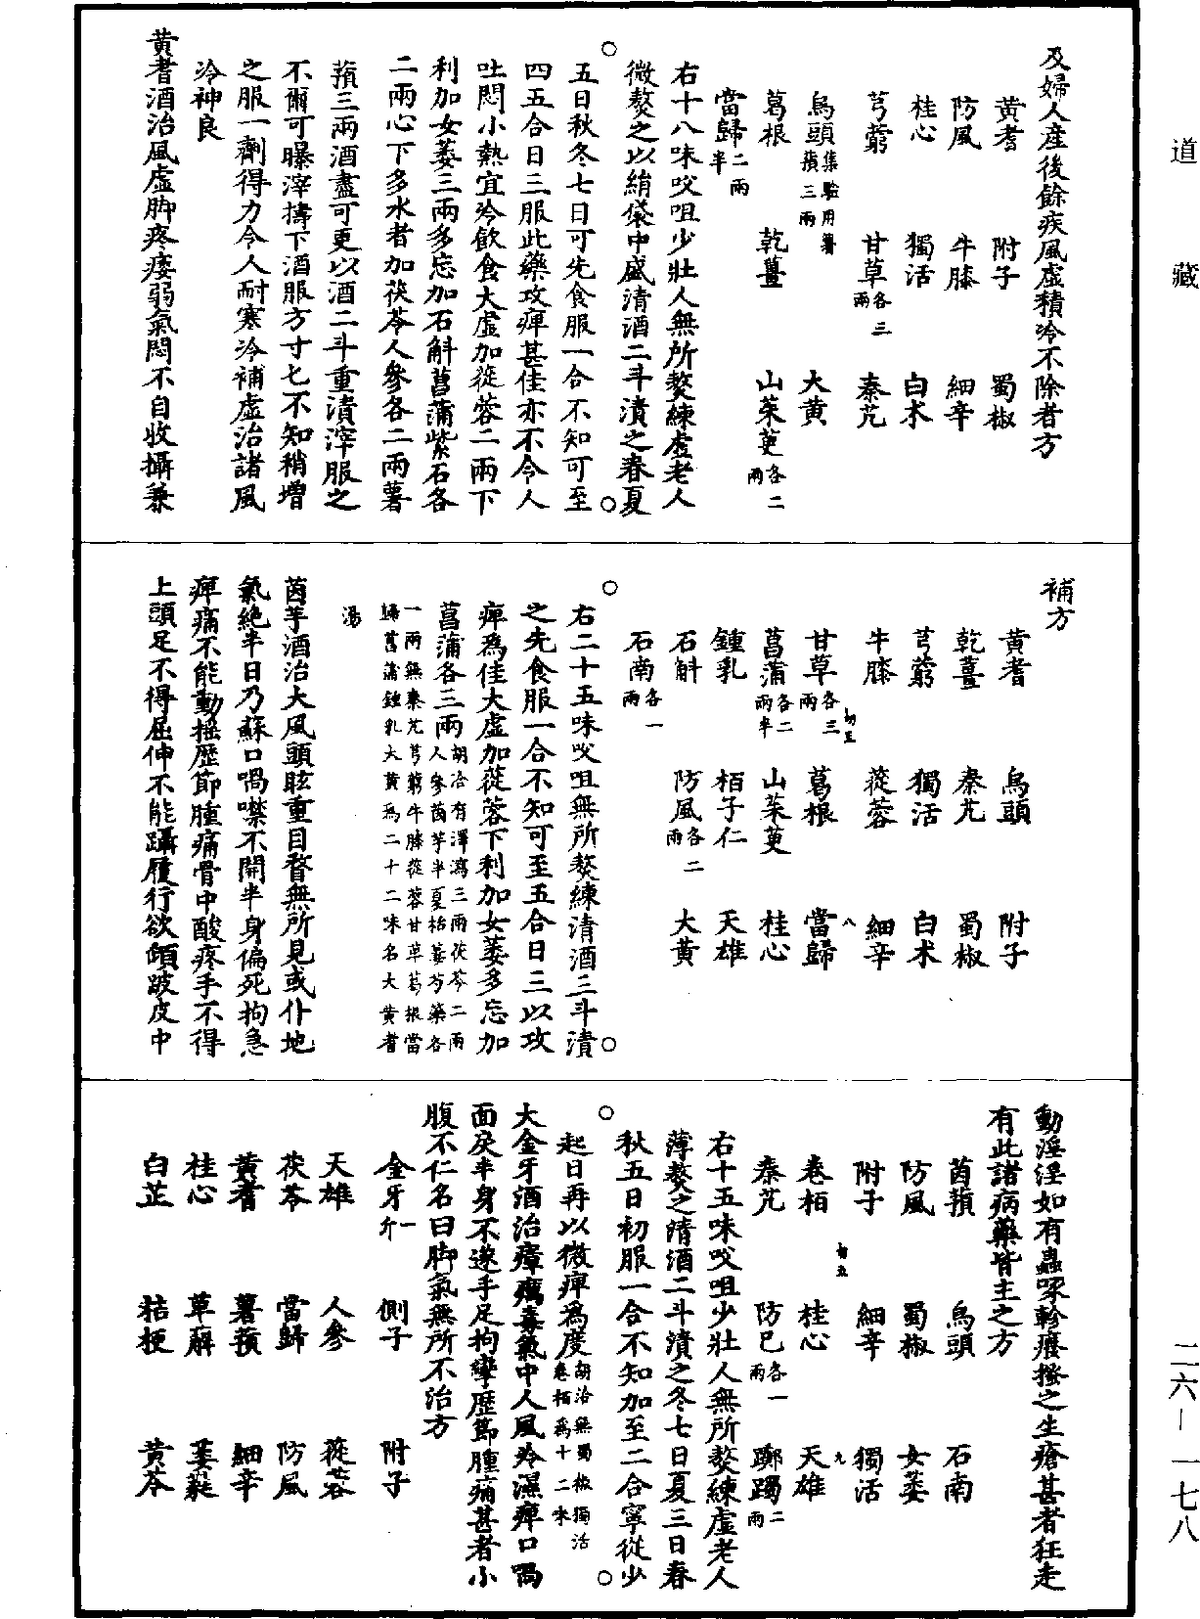 道藏
二六—一七八
及婦人產後餘疾風虛積冷不除者方
黃耆　附子　蜀椒
防風　牛膝　細辛
桂心　獨活　白朮
芎藭　甘草各三兩　秦艽
烏頭集驗用薯蕷三兩　大黃
葛根　乾薑　山茱萸各二兩
當歸二兩半
右十八味㕮咀少壯人無所熬練虛老人
微熬之以絹袋中盛清酒二斗漬之春夏
五日秋冬七日可先食服一合不知可至
四五合日三服此藥攻痺甚佳亦不令人
吐悶小熱宜冷飲食大虛加蓯蓉二兩下
利加女萎三兩多忘加石斛菖蒲紫石各
二兩心下多水者加茯苓人參各二兩薯
蕷三兩酒盡可更以酒二斗重漬滓服之
不爾可曝滓擣下酒服方寸匕不知稍增
之服一劑得力令人耐寒冷補虛治諸風
冷神良
黃耆酒治風虛脚疼痿弱氣悶不自收攝兼
補方
黃耆　烏頭　附子
乾薑　秦艽　蜀椒
芎藭　獨活　白朮
牛膝　蓯蓉　細辛
初五　八
甘草各三兩　葛根　當歸
菖蒲各二兩半　山茱萸　桂心
鍾乳　栢子仁　天雄
石斛　防風各二兩　大黃
石南各一兩
右二十五味㕮咀無所熬練清酒三斗漬
之先食服一合不知可至五合日三以攻
痺為佳大虛加蓯蓉下利加女萎多忘加
菖蒲各三兩胡洽有澤瀉三兩茯苓二兩人參茵芋半夏栝蔞芍藥各
一兩無秦艽芎藭牛膝蓯蓉甘草葛根當歸菖蒲鍾乳大黃為二十二味名大黃耆
湯
茵芋酒治大風頭眩重目瞀無所見或仆地
氣絕半日乃蘇口喎噤不開半身偏死拘急
痺痛不能動搖歷節腫痛骨中酸疼手不得
上頭足不得屈伸不能躡履行欲傾跛皮中
動淫淫如有蟲啄軫癢搔之生瘡甚者狂走
有此諸病藥皆主之方
茵蕷　烏頭　石南
防風　蜀椒　女萎
附子　細辛　獨活
初五　九
卷栢　桂心　天雄
秦艽　防已各一兩　躑躅二兩
右十五味㕮咀少壯人無所熬練虛老人
薄熬之清酒二斗漬之冬七日夏三日春
秋五日初服一合不知加至二合寧從少
起日再以微痺為度胡洽無蜀椒獨活卷栢為十二味
大金牙酒治瘴癘毒氣中人風冷濕痺口喎
面戾半身不遂手足拘攣歷節腫痛甚者小
腹不仁名曰脚氣無所不治方
金牙一斤　側子　附子
天雄　人參　蓯蓉
茯苓　當歸　防風
黃耆　薯蕷　細辛
桂心　萆薢　葳蕤
白芷　桔梗　黃芩